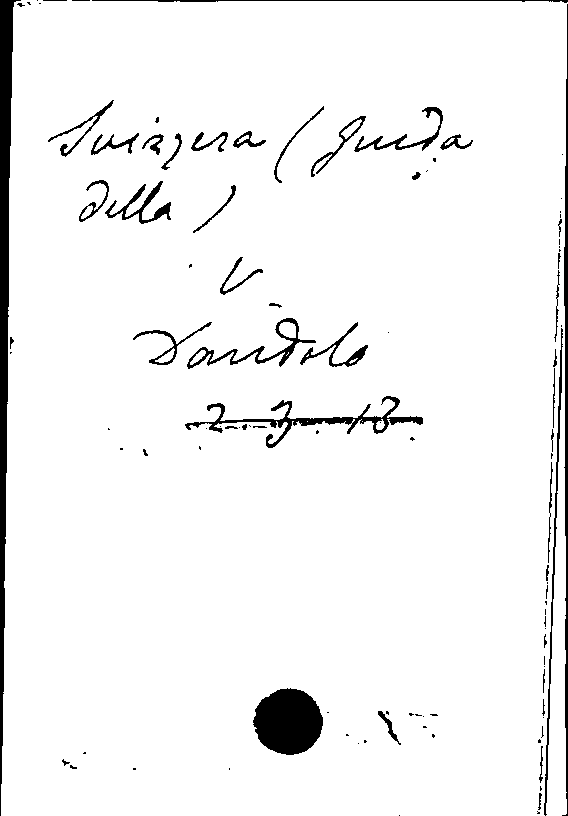 Svizzera (Guida
della)
V
Dandolo
2 3 13